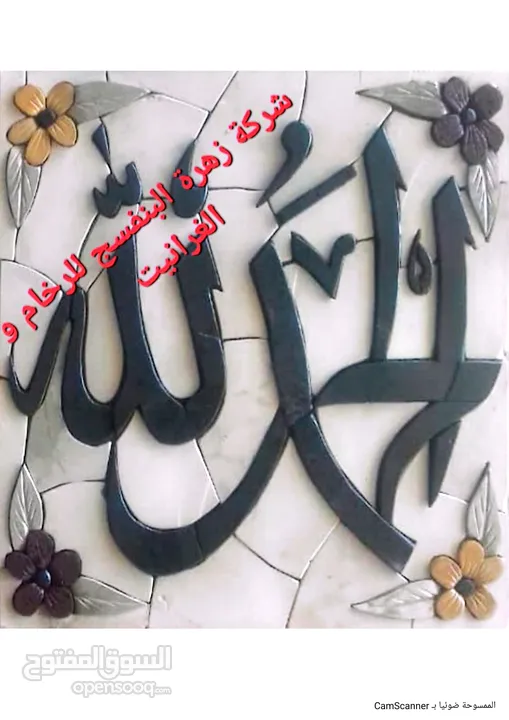 شركة زهرة البنفسج للرخام و
الغرانيت
الحمد لله
السوق المفتوح
opensooq.com
الممسوحة ضوئيا بـ CamScanner